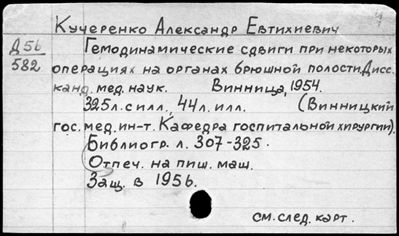 Кучеренко Александр Евтихиевич
Д56
582
Гемодинамические сдвиги при некоторых
операциях на органах брюшной полости. Дисс.
канд. мед. наук. Винница, 1954.
325 л. с илл. 44 л. илл. (Винницкий
гос. мед. ин-т. Кафедра госпитальной хирургии).
Библиогр. л. 307-325.
Отпеч. на пиш. маш.
Защ. в 1956.
см. след. карт.